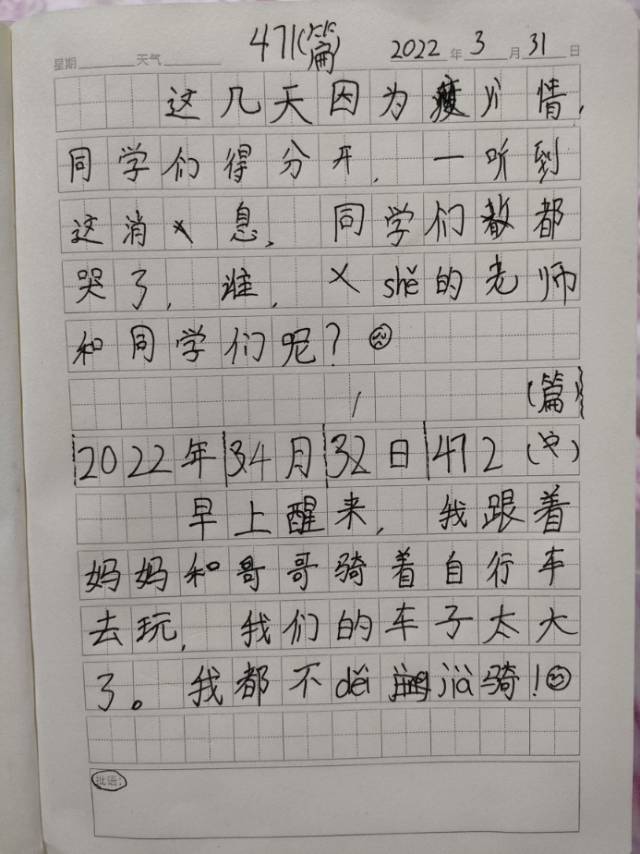 471(篇)
星期 天气 2022年3月31日
这几天因为疫情,
同学们得分开,一听到
这消息,同学们都
哭了,谁,shě的老师
和同学们呢?
(篇)
2022年 34月 32日 472(中)
早上醒来,我跟着
妈妈和哥哥骑着自行车
去玩,我们的车子太大
了。我都不děi jià骑!
批语: